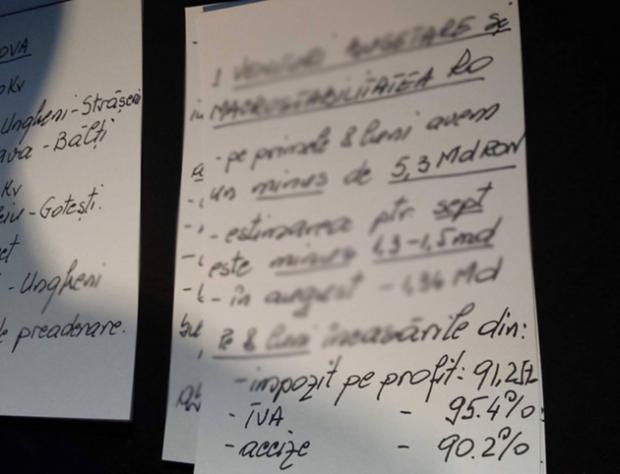 OVA
oKv
Ungheni-Strășeni
ava - Bălți
Kv
- Gotești.
et
- Ungheni
preaderare.
1 VENITURI BUGETARE ȘI
MACROSTABILITATEA RO
- pe primele 8 luni avem
un minus de 5,3 Md RON
- estimarea ptr sept
este minus 1,3-1,5 md
- în august - 1,34 Md
Pe 8 luni încasările din:
- impozit pe profit: 91,2%
- TVA - 95.4%
- accize - 90.2%